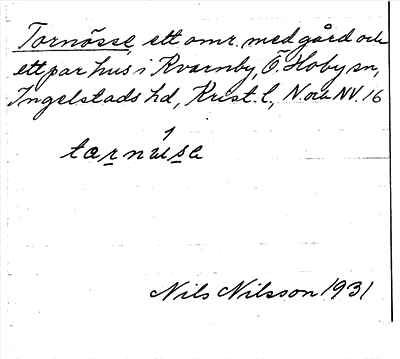 Tornösse, ett omr. med gård och
ett par hus i Kvarnby, Ö. Hoby sn,
Ingelstads hd, Krist. l, N och NV. 16
Nils Nilsson 1931